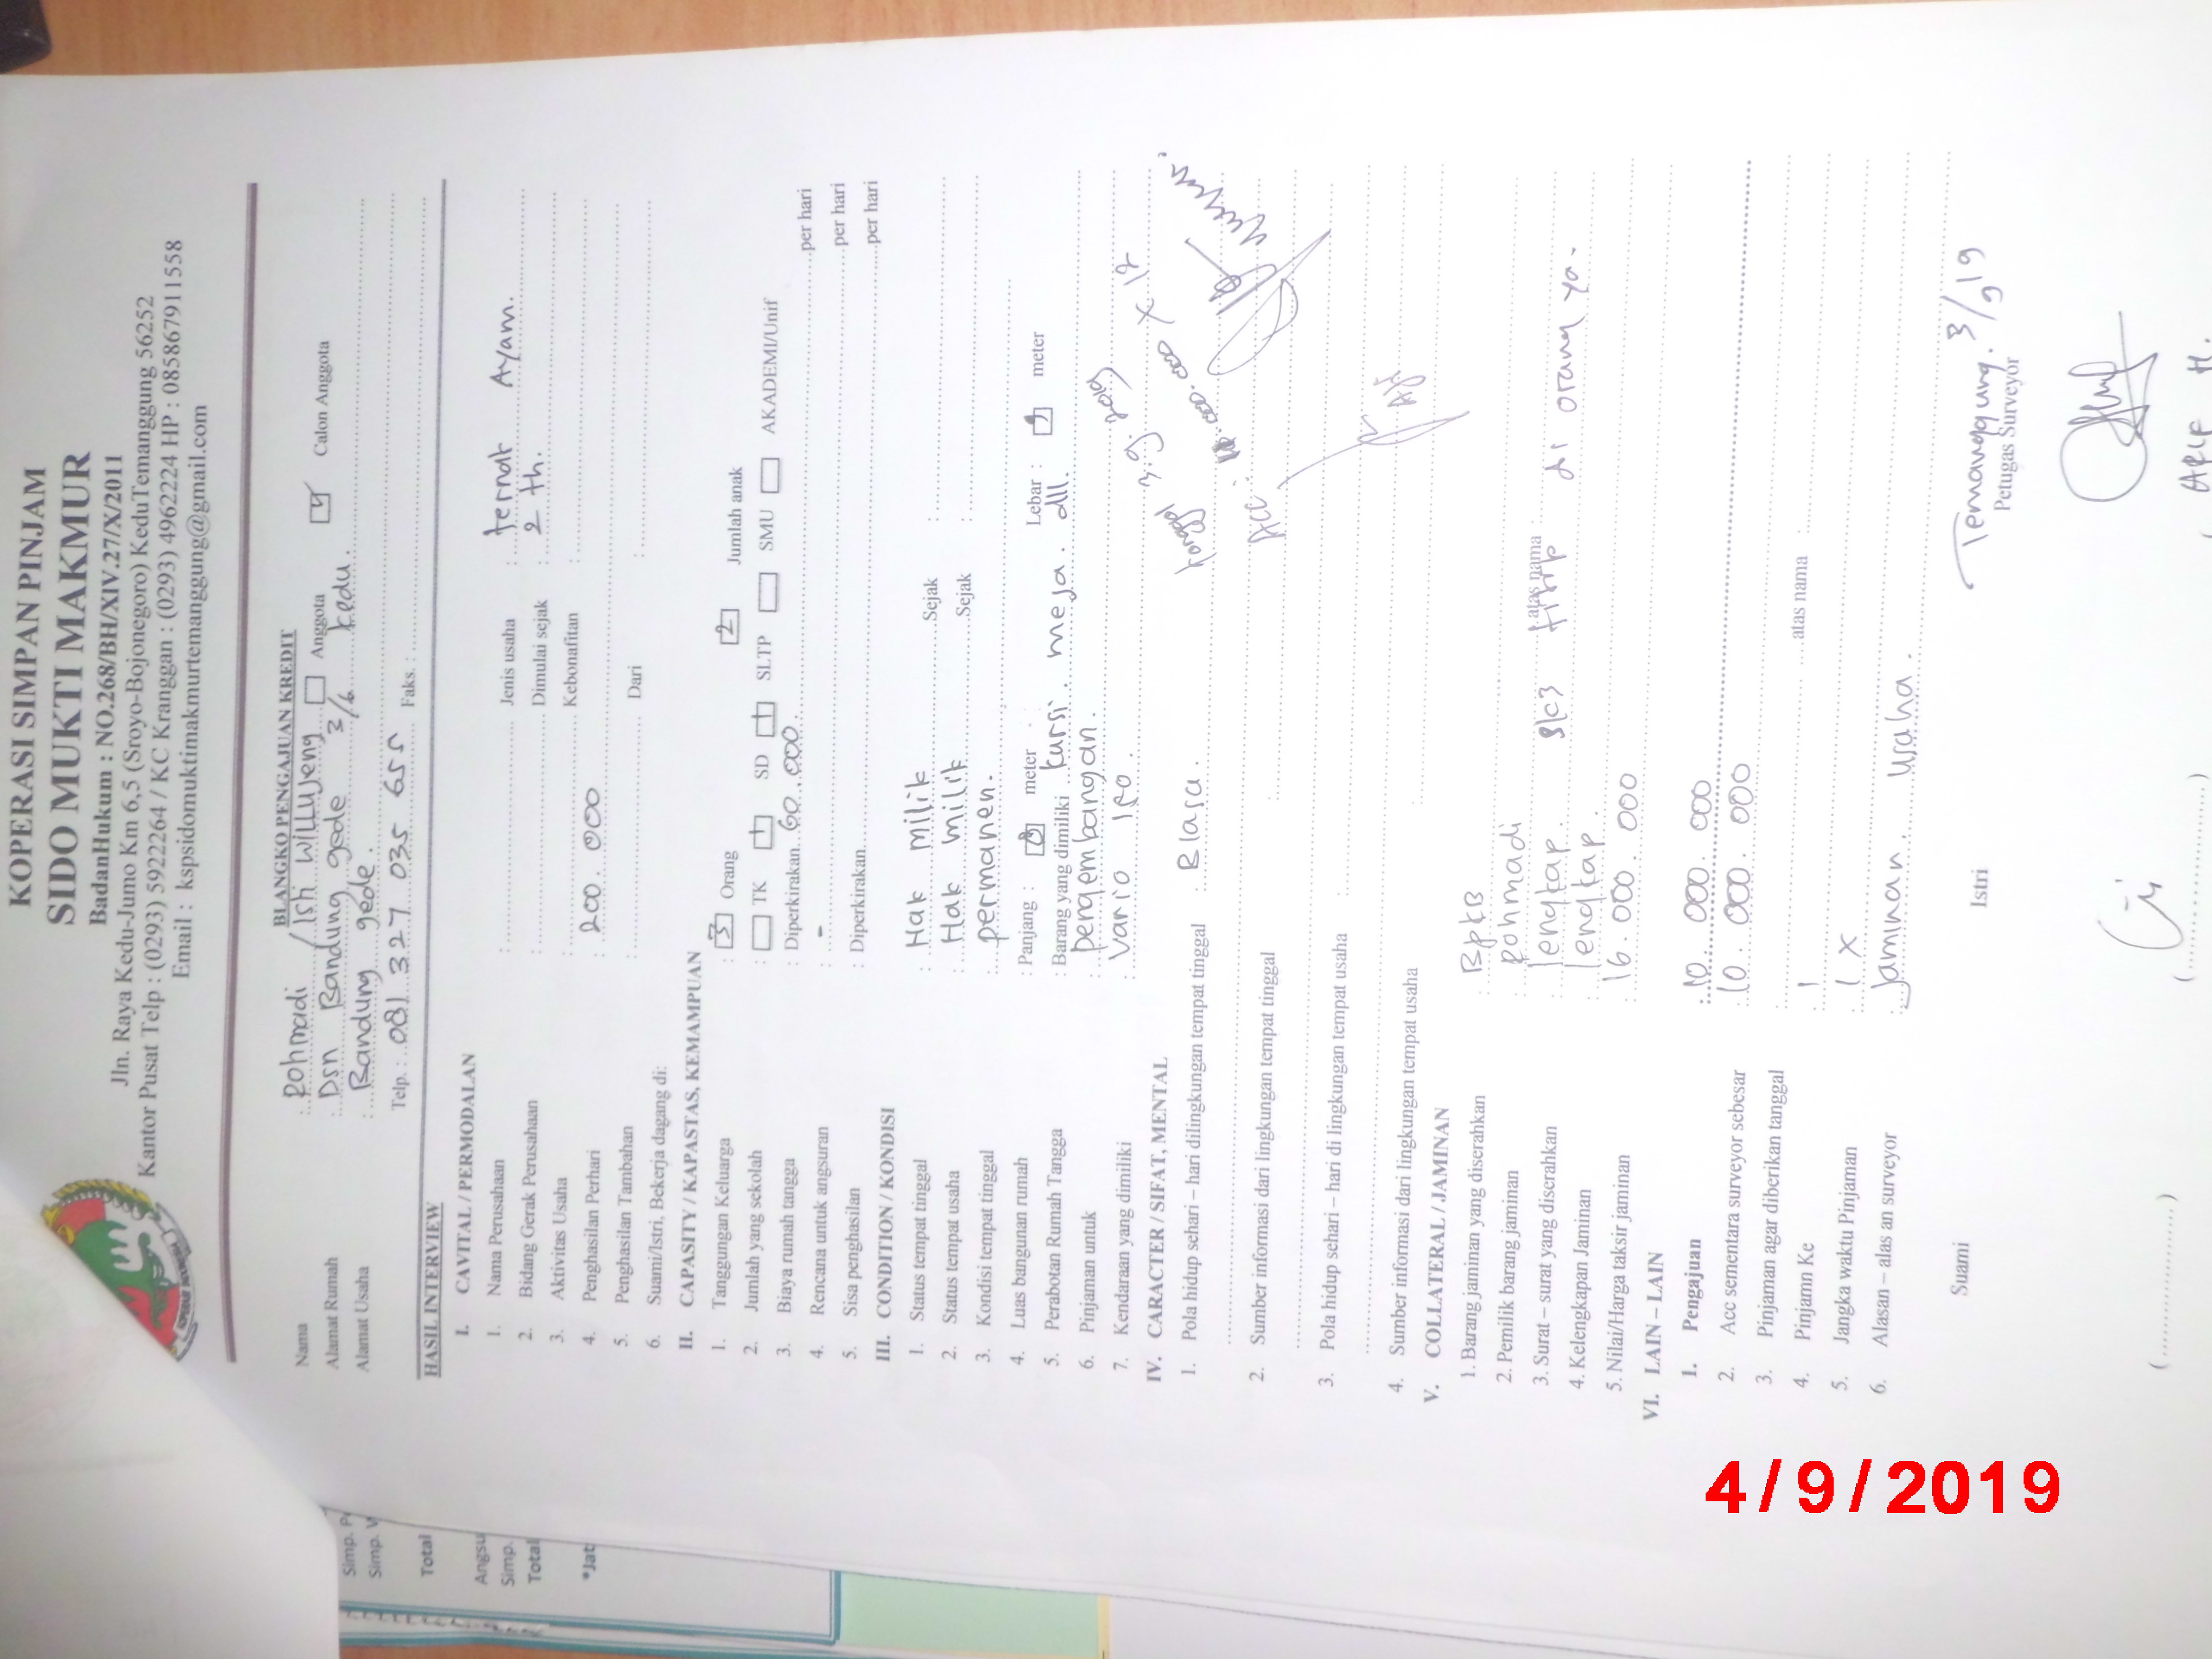 KOPERASI SIMPAN PINJAM
SIDO MUKTI MAKMUR
BadanHukum : NO.268/BH/XIV.27/X/2011
Jln. Raya Kedu-Jumo Km 6,5 (Sroyo-Bojonegoro) KeduTemanggung 56252
Kantor Pusat Telp : (0293) 5922264 / KC Kranggan : (0293) 4962224 HP : 085867911558
Email : kspsidomuktimakmurtemanggung@gmail.com
BLANGKO PENGAJUAN KREDIT
Nama : Rohmadi / Isti Willujeng Anggota Calon Anggota
Alamat Rumah : Dsn Bandung gede 3/6 kedu.
Alamat Usaha : Bandung gede.
Telp. : 081 327 035 655 Faks. :
HASIL INTERVIEW
I. CAVITAL / PERMODALAN
1. Nama Perusahaan : Jenis usaha : Ternak Ayam.
2. Bidang Gerak Perusahaan : Dimulai sejak : 2 th.
3. Aktivitas Usaha : Kebonafitan :
4. Penghasilan Perhari : 200.000
5. Penghasilan Tambahan :
6. Suami/Istri, Bekerja dagang di: : Dari :
II. CAPASITY / KAPASTAS, KEMAMPUAN
1. Tanggungan Keluarga : 3 Orang 2 Jumlah anak
2. Jumlah yang sekolah : TK 1 SD 1 SLTP SMU AKADEMI/Unif
3. Biaya rumah tangga : Diperkirakan 60.000 per hari
4. Rencana untuk angsuran : - per hari
5. Sisa penghasilan : Diperkirakan per hari
III. CONDITION / KONDISI
1. Status tempat tinggal : Hak milik Sejak :
2. Status tempat usaha : Hak milik Sejak :
3. Kondisi tempat tinggal : permanen.
4. Luas bangunan rumah : Panjang : meter Lebar : meter
5. Perabotan Rumah Tangga : Barang yang dimiliki kursi. meja. dll.
6. Pinjaman untuk : pengembangan.
7. Kendaraan yang dimiliki : Vario 150.
IV. CARACTER / SIFAT, MENTAL
1. Pola hidup sehari – hari dilingkungan tempat tinggal : Biasa.
2. Sumber informasi dari lingkungan tempat tinggal :
3. Pola hidup sehari – hari di lingkungan tempat usaha :
4. Sumber informasi dari lingkungan tempat usaha :
ACC :
V. COLLATERAL / JAMINAN
1. Barang jaminan yang diserahkan : BPKB
2. Pemilik barang jaminan : Rohmadi
3. Surat – surat yang diserahkan : lengkap. atas nama
4. Kelengkapan Jaminan : lengkap.
5. Nilai/Harga taksir jaminan : 16.000.000
VI. LAIN – LAIN
1. Pengajuan : 10.000.000
2. Acc sementara surveyor sebesar : 10.000.000
3. Pinjaman agar diberikan tanggal :
4. Pinjamn Ke : 1 atas nama :
5. Jangka waktu Pinjaman : 1 x
6. Alasan – alas an surveyor : Jaminan. usaha.
Temanggung. 3/9 19
Suami Istri Petugas Surveyor
ARIF H.
4/9/2019
Simp.
Simp.
Total
Angsu
Simp.
Total
*Jat